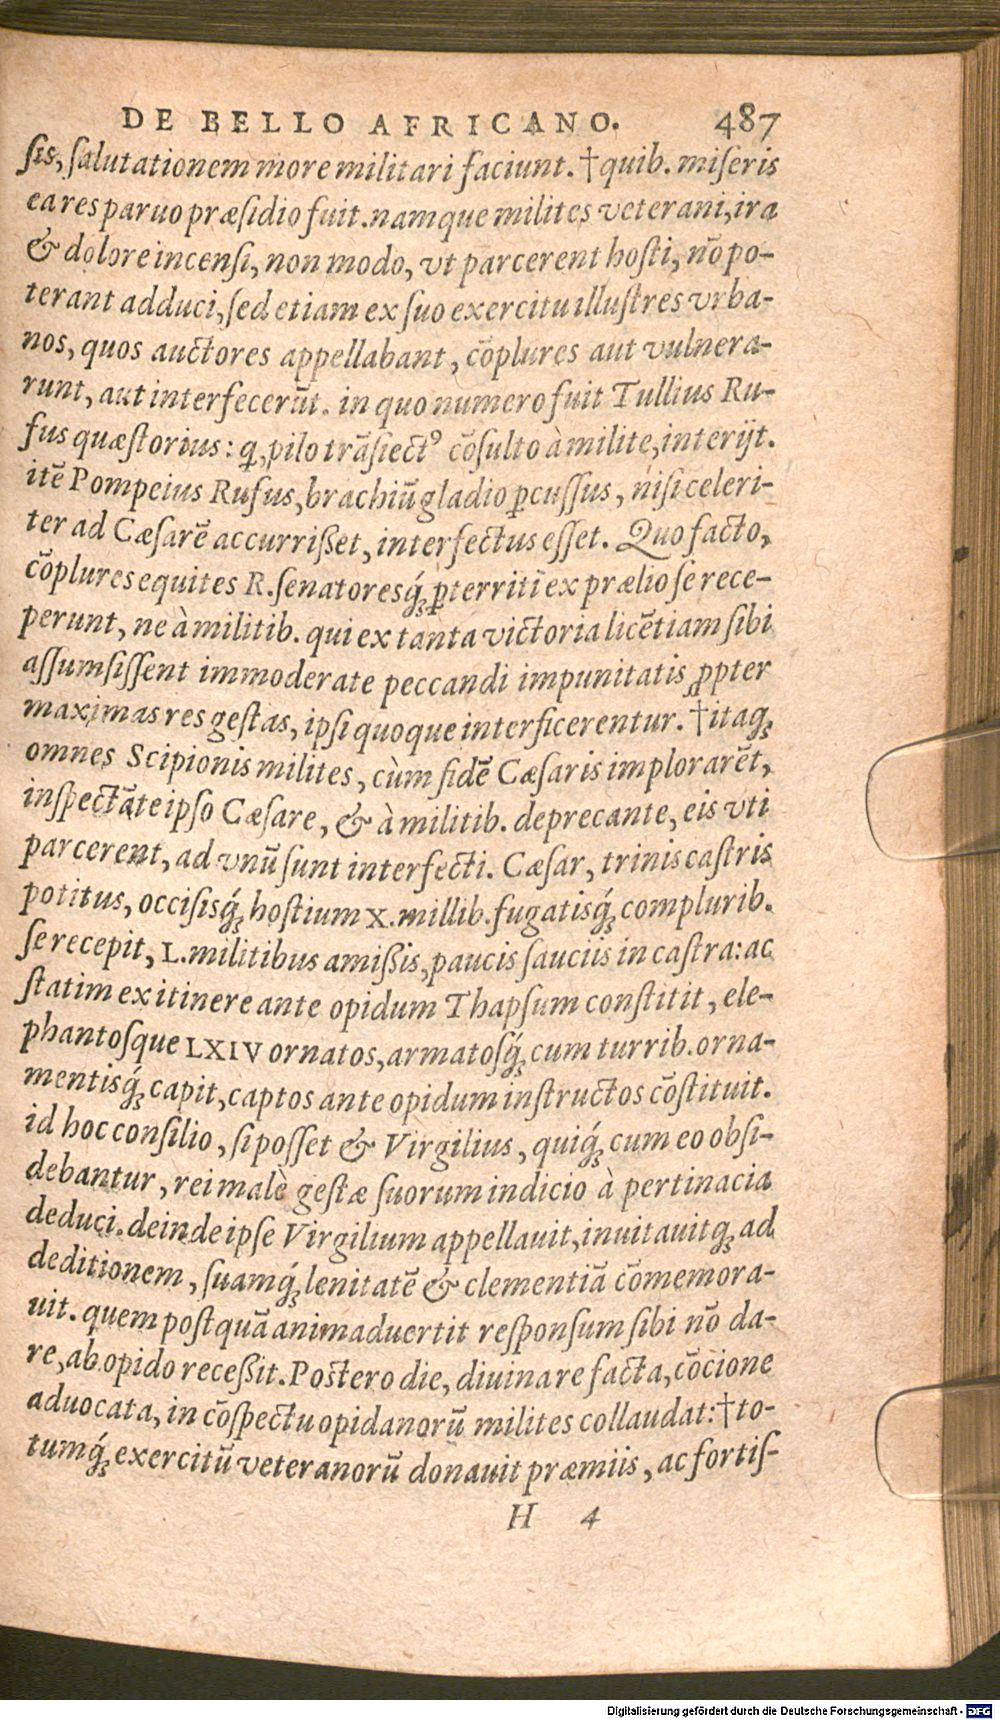 DE BELLO AFRICANO. 487
sis, salutationem more militari faciunt. †quib. miseris
ea res paruo præsidio fuit. namque milites veterani, ira
& dolore incensi, non modo, vt parcerent hosti, nō po-
terant adduci, sed etiam ex suo exercitu illustres vrba-
nos, quos auctores appellabant, cōplures aut vulnera-
runt, aut interfecerūt. in quo numero fuit Tullius Ru-
fus quæstorius: q̃, pilo trāsiectꝰ cōsulto à milite, interijt.
itē Pompeius Rufus, brachiū gladio ꝑcussus, nisi celeri-
ter ad Cæsarē accurrißet, interfectus esset. Quo facto,
cōplures equites R. senatoresq́; ꝑterriti ex prælio se rece-
perunt, ne à militib. qui ex tanta victoria licētiam sibi
assumsissent immoderate peccandi impunitatis ꝓpter
maximas res gestas, ipsi quoque interficerentur. †itaq;
omnes Scipionis milites, cùm fidē Cæsaris implorarēt,
inspectāte ipso Cæsare, & à militib. deprecante, eis vti
parcerent, ad vnū sunt interfecti. Cæsar, trinis castris
potitus, occisisq́; hostium X. millib. fugatisq́; complurib.
se recepit, L. militibus amißis, paucis sauciis in castra: ac
statim ex itinere ante opidum Thapsum constitit, ele-
phantosque LXIV ornatos, armatosq́; cum turrib. orna-
mentisq́; capit, captos ante opidum instructos cōstituit.
id hoc consilio, si posset & Virgilius, quiq́; cum eo obsi-
debantur, rei malè gestæ suorum indicio à pertinacia
deduci. deinde ipse Virgilium appellauit, inuitauitq; ad
deditionem, suamq́; lenitatē & clementiā cōmemora-
uit. quem postquā animaduertit responsum sibi nō da-
re, ab opido receßit. Postero die, diuina re facta, cōcione
aduocata, in cōspectu opidanorū milites collaudat: †to-
tumq́; exercitū veteranorū donauit præmiis, ac fortis-
H 4
Digitalisierung gefördert durch die Deutsche Forschungsgemeinschaft - DFG